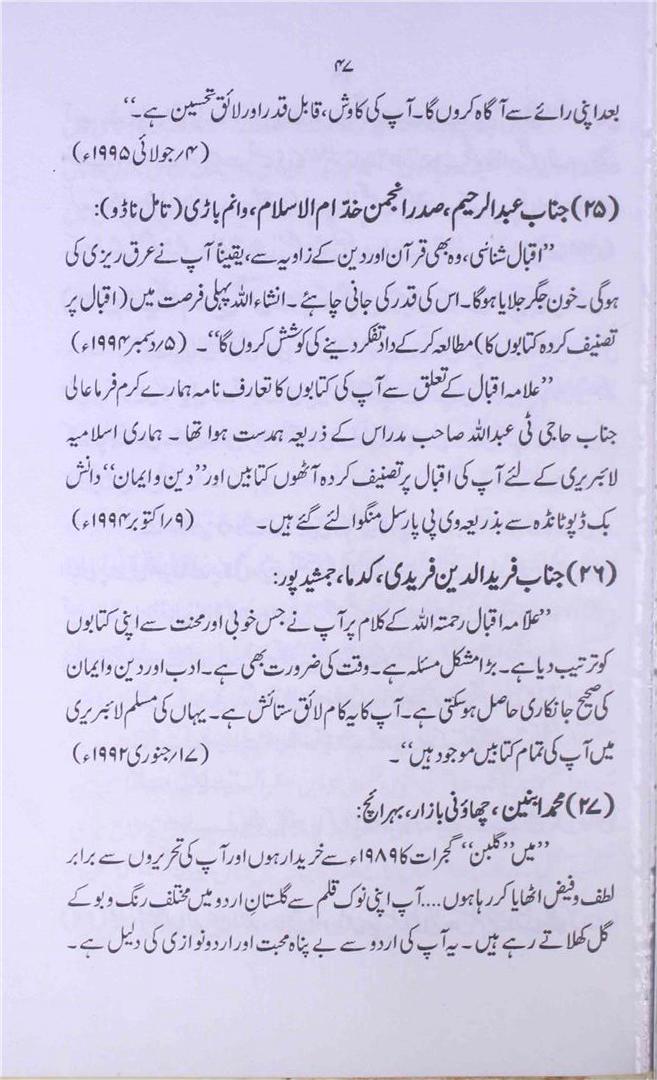 ۴۷
بعد اپنی رائے سے آگاہ کروں گا۔ آپ کی کاوش، قابل قدر اور لائق تحسین ہے۔‘‘
(۴؍جولائی ۱۹۹۵ء)
(۲۵) جناب عبدالرحیم، صدر انجمن خدّام الاسلام، وانم باڑی (تامل ناڈو):
’’اقبال شناسی، وہ بھی قرآن اور دین کے زاویہ سے، یقیناً آپ نے عرق ریزی کی
ہوگی۔ خون جگر جلایا ہوگا۔ اس کی قدر کی جانی چاہئے۔ انشاء اللہ پہلی فرصت میں (اقبال پر
تصنیف کردہ کتابوں کا) مطالعہ کرکے داد تفکر دینے کی کوشش کروں گا‘‘۔ (۵؍دسمبر ۱۹۹۴ء)
’’علامہ اقبال کے تعلق سے آپ کی کتابوں کا تعارف نامہ ہمارے کرم فرما عالی
جناب حاجی ٹی عبداللہ صاحب مدراس کے ذریعہ ہمدست ہوا تھا۔ ہماری اسلامیہ
لائبریری کے لئے آپ کی اقبال پر تصنیف کردہ آٹھوں کتابیں اور ’’دین و ایمان‘‘ دانش
بک ڈپو ٹانڈہ سے بذریعہ وی پی پارسل منگوالئے گئے ہیں۔ (۹؍اکتوبر ۱۹۹۴ء)
(۲۶) جناب فریدالدین فریدی، کدما، جمشید پور:
’’علامہ اقبال رحمتہ اللہ کے کلام پر آپ نے جس خوبی اور محنت سے اپنی کتابوں
کو ترتیب دیا ہے۔ بڑا مشکل مسئلہ ہے۔ وقت کی ضرورت بھی ہے۔ ادب اور دین و ایمان
کی صحیح جانکاری حاصل ہوسکتی ہے۔ آپ کا یہ کام لائق ستائش ہے۔ یہاں کی مسلم لائبریری
میں آپ کی تمام کتابیں موجود ہیں‘‘۔ (۱۷؍جنوری ۱۹۹۲ء)
(۲۷) محمد ابنین، چھاؤنی بازار، بہرائچ:
’’میں ’’گلبن‘‘ گجرات کا ۱۹۸۹ء سے خریدار ہوں اور آپ کی تحریروں سے برابر
لطف و فیض اٹھایا کر رہا ہوں.... آپ اپنی نوک قلم سے گلستانِ اردو میں مختلف رنگ و بو کے
گل کھلاتے رہے ہیں۔ یہ آپ کی اردو سے بے پناہ محبت اور اردو نوازی کی دلیل ہے۔